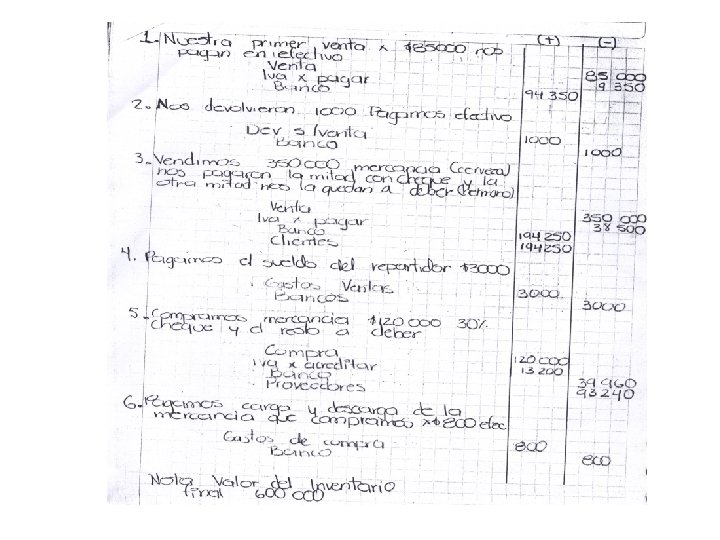 (+) (-)
1. Nuestra primer venta x $85000 nos
pagan en efectivo
Venta 85 000
Iva x pagar 9 350
Banco 94 350
2. Nos devolvieron 1000 Pagamos efectivo
Dev s/venta 1000
Banco 1000
3. Vendimos 350 000 mercancia (cerveza)
nos pagaron la mitad con cheque y la
otra mitad nos la quedan a deber
Venta 350 000
Iva x pagar 38 500
Banco 194 250
Clientes 194250
4. Pagamos el sueldo del repartidor $3000
Gastos Ventas 3000
Bancos 3000
5. Compramos mercancia $120 000 30%
cheque y el resto a deber
Compra 120 000
Iva x acreditar 13 200
Banco 39 960
Proveedores 93 240
6. Pagamos carga y descarga de la
mercancia que compramos x $800 efec
Gastos de compra 800
Banco 800
Nota Valor del Inventario
final 600 000